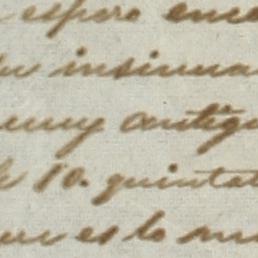 espero enca
insinua
muy antigu
10. quintal
es lo m